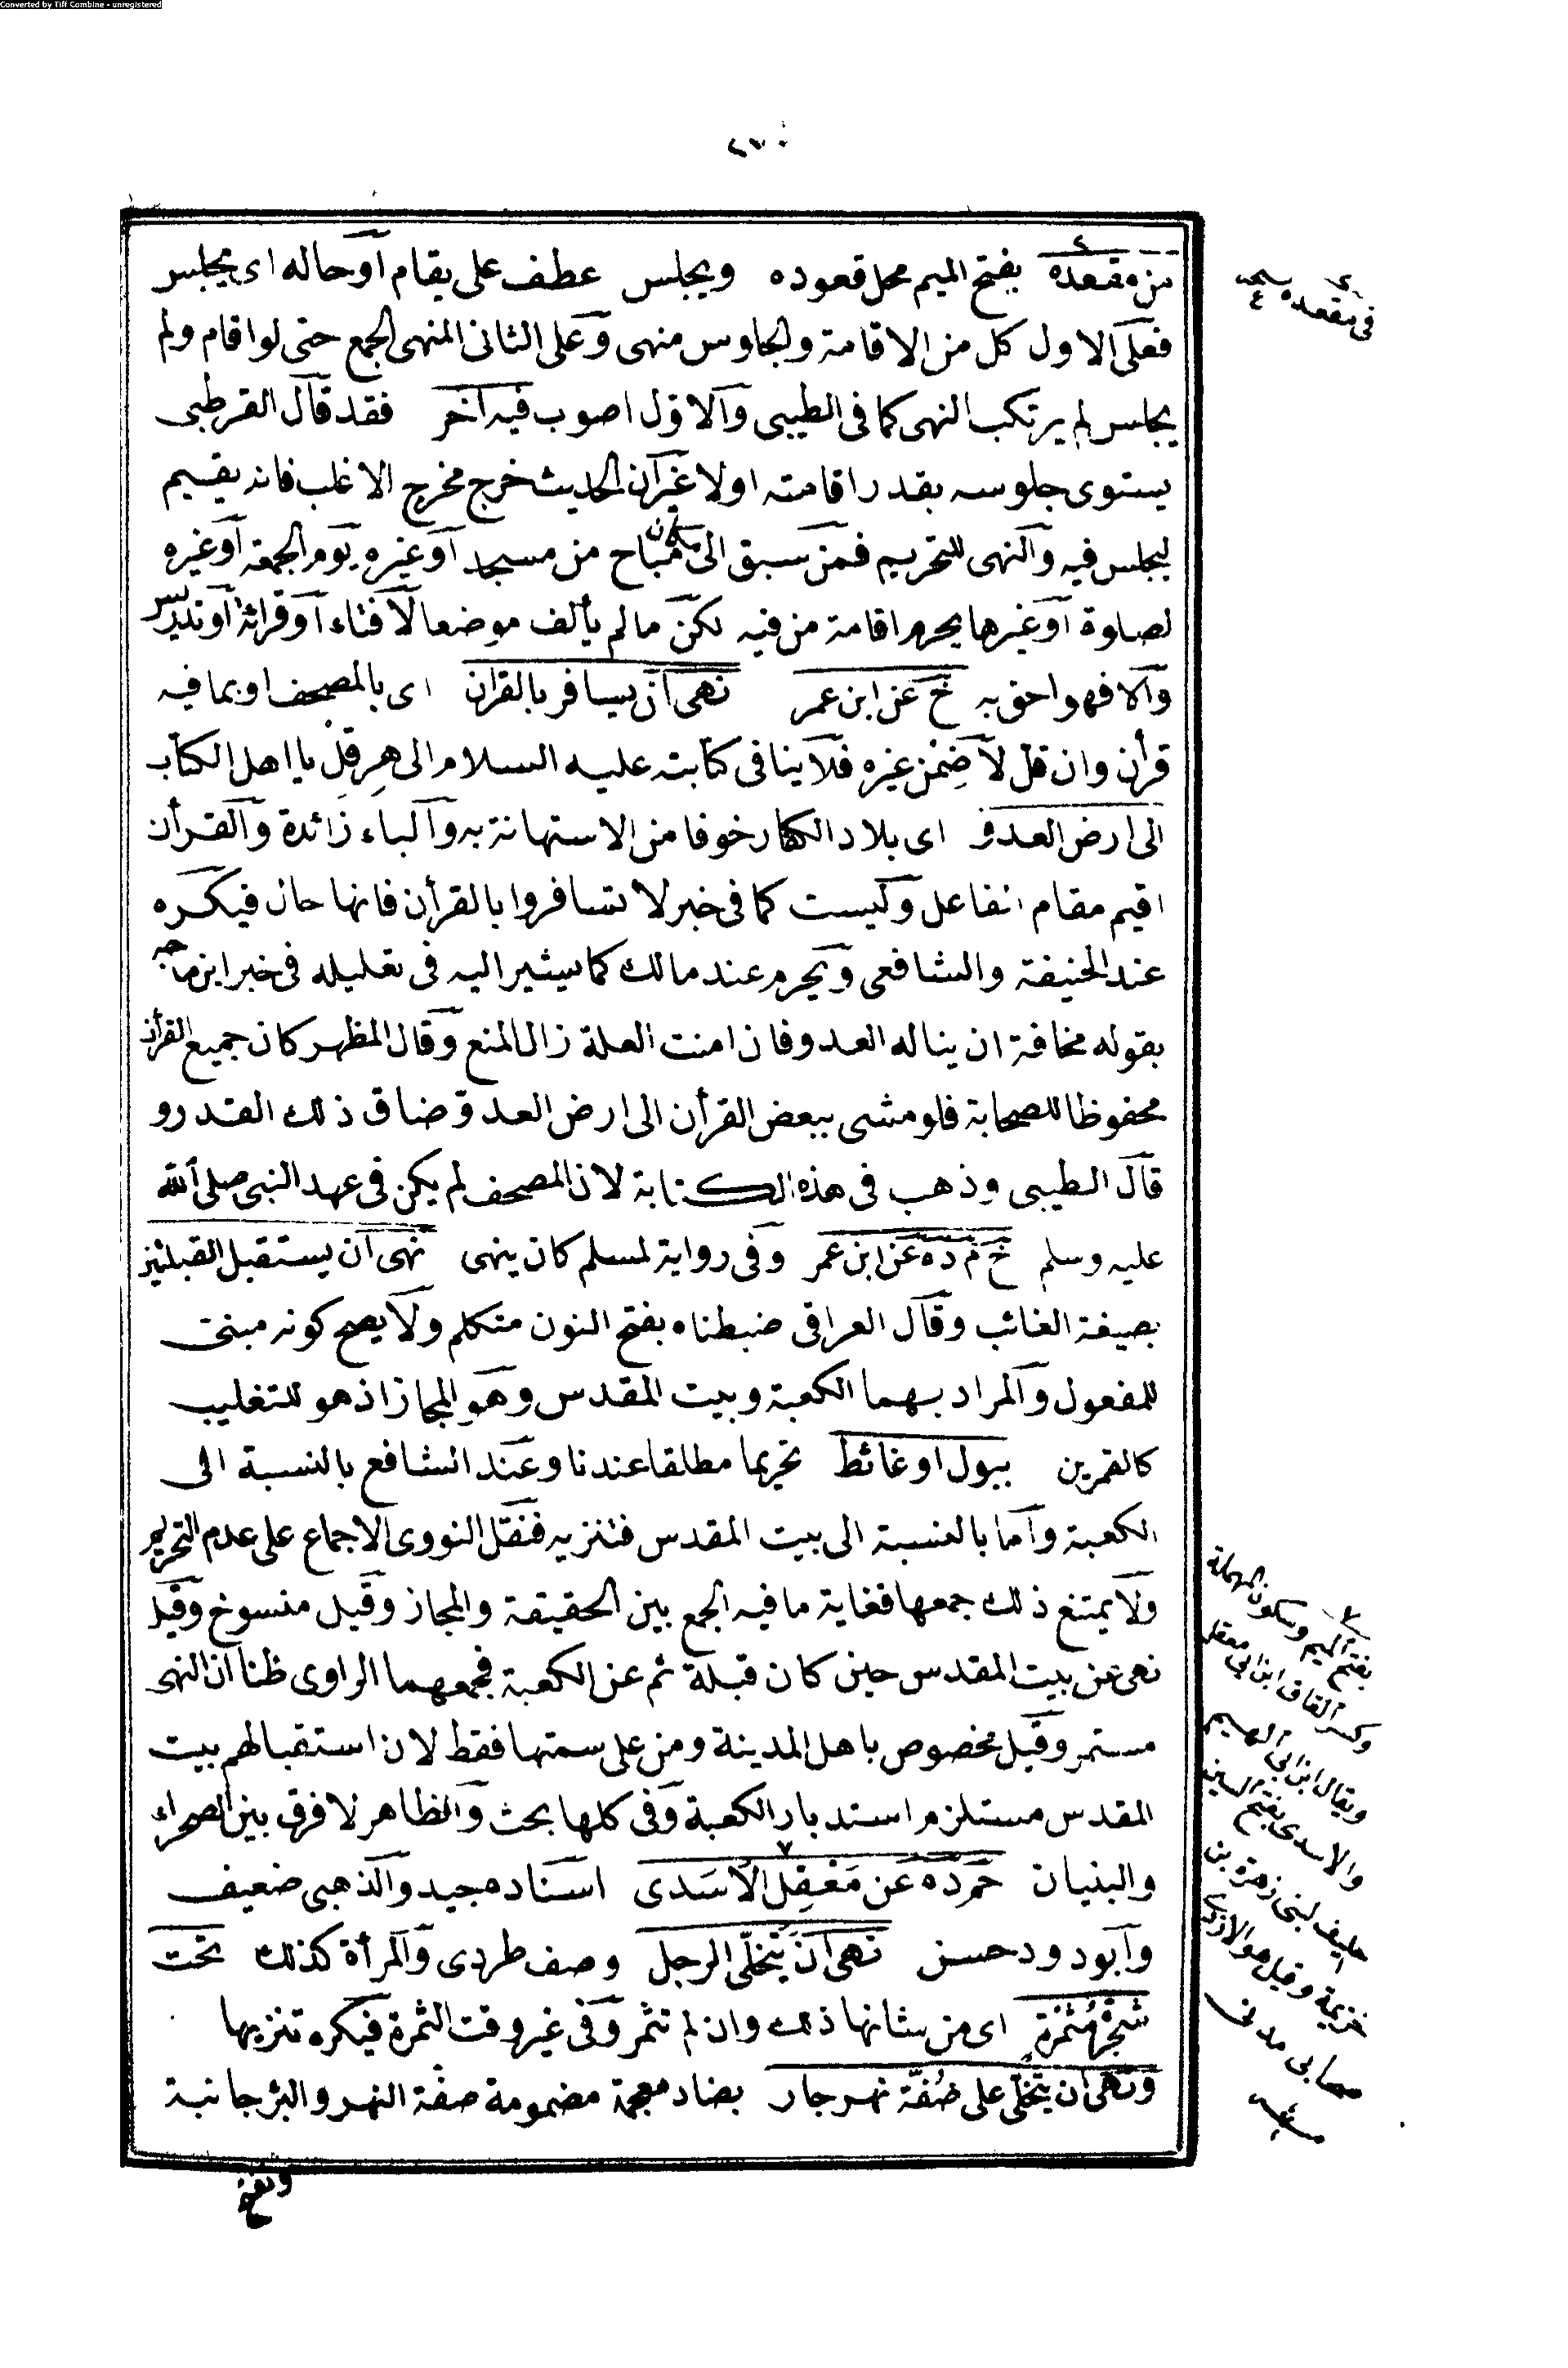 Converted by Tiff Combine - unregistered
٢٧٠
من مقعده بفتح الميم محل قعوده ويجلس عطف على يقام او حاله اى يجلس
فعلى الاول كل من الاقامة والجلوس منهى وعلى الثانى المنهى الجمع حتى لو اقام ولم
يجلس لم يرتكب النهى كما فى الطيبى والاول اصوب فيه آخر فقد قال القرطبى
يستوى جلوسه بقدر اقامته اولا غير ان الحديث خرج مخرج الاغلب فانه يقيم
ليجلس فيه والنهى للتحريم فمن سبق الى مكان مباح من مسجد او غيره يوم الجمعة او غيره
لصلوة او غيرها يحرم اقامة من فيه لكن ما لم يألف موضعا لافتاء او قرائة او تدريس
والا فهو احق به خ عن ابن عمر نهى ان يسافر بالقران اى بالمصحف او بما فيه
قرأن وان قل لا ضمن غيره فلا ينافى كتابته عليه السلام الى هرقل يا اهل الكتاب
الى ارض العدو اى بلاد الكفار خوفا من الاستهانة به والباء زائدة والقرأن
اقيم مقام الفاعل وليست كما فى خبر لا تسافروا بالقرأن فانها حال فيكره
عند الحنيفة والشافعى ويحرم عند مالك كما يشير اليه فى تعليله فى خبر ابن ماجه
بقوله مخافة ان يناله العدو فان امنت العلة زال المنع وقال المظهر كان جميع القرأن
محفوظا للصحابة فلو مشى ببعض القرأن الى ارض العدو ضاق ذلك القدر و
قال الطيبى وذهب فى هذه الكتابة لان المصحف لم يكن فى عهد النبى صلى الله
عليه وسلم خ م د ه عن ابن عمر وفى رواية لمسلم كان ينهى نهى ان يستقبل القبلتين
بصيغة الغائب وقال العراقى ضبطناه بفتح النون متكلم ولا يصح كونه مبنى
للمفعول والمراد بهما الكعبة وبيت المقدس وهو المجاز اذ هو للتغليب
كالقمرين ببول او غائط تحريما مطلقا عندنا وعند الشافع بالنسبة الى
الكعبة واما بالنسبة الى بيت المقدس فتنزيه فنقل النووى الاجماع على عدم التحريم
ولا يمتنع ذلك جمعها فغاية ما فيه الجمع بين الحقيقة والمجاز وقيل منسوخ وقيل
نهى عن بيت المقدس حين كان قبلة ثم عن الكعبة فجمعهما الراوى ظنا ان النهى
مستمر وقيل مخصوص باهل المدينة ومن على سمتها فقط لان استقبالهم بيت
المقدس مستلزم استدبار الكعبة وفى كلها بحث والظاهر لا فرق بين الصحراء
والبنيان حم د ه عن مَعْقِل الاَسَدى اسناده جيد والذهبى ضعيف
وابود ود حسن نهى ان يَتخلّى الرجل وصف طردى والمرأة كذلك تحت
شجرة مُثمرة اى من شانها ذلك وان لم تثمر وفى غير وقت الثمرة فيكره تنزيها
ونهى ان يتخلّى على ضُفّة نهر جار بضاد معجمة مضمومة صفة النهر والبئر جانبة
وتفتح
فى مقعده نسخه
بفتح الميم وسكون المهملة
وكسر القاف ابن ابى معقل
ويقال ابن ابى الهيثم
والاسدى بفتح السين
حليف لبنى زهرة بن
خزيمة وقيل هو الازدى
صحابى مدنى